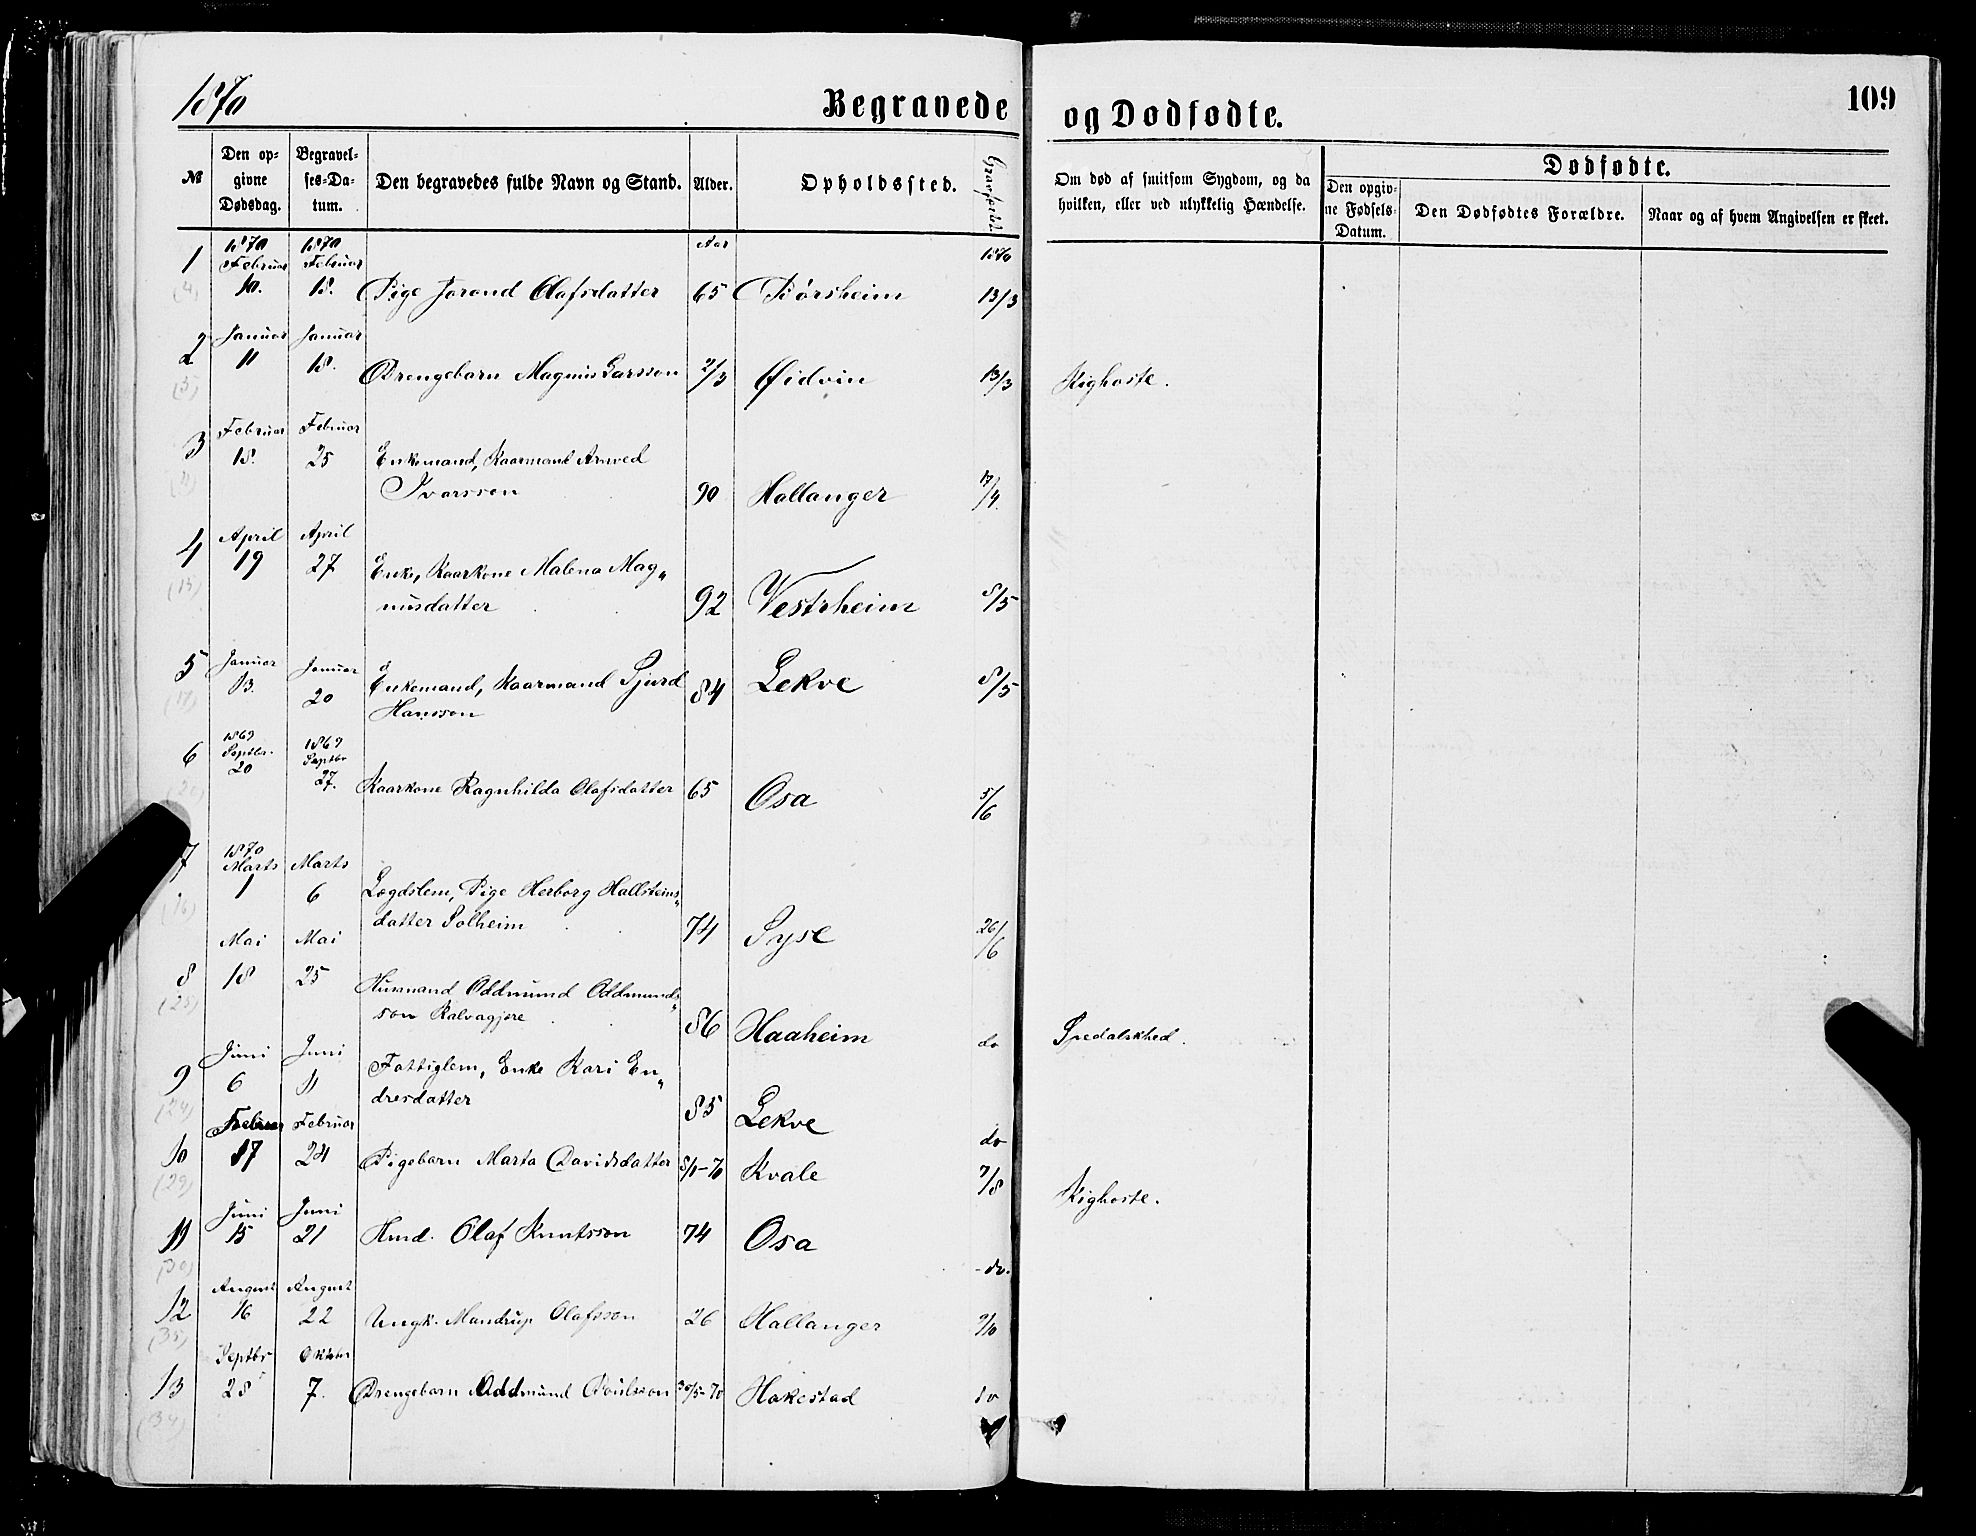 1870
Begravede
og Dødfødte.
109
№
Den op-
givne
Dødsdag.
Begravel-
ses-Da-
tum.
Den begravedes fulde Navn og Stand.
Alder.
Opholdssted.
Om død af smitsom Sygdom, og da
hvilken, eller ved ulykkelig Hændelse.
Dødfødte.
Den opgiv-
ne Fødsels-
Datum.
Den Dødfødtes Forældre.
Naar og af hvem Angivelsen er skeet.
1870 1870 Aar 1870
1 Februar Februar
10. 18. Pige Jorond Olafsdatter 65 Tiørsheim 13/3
2 Januar Januar
11 18. Drengebarn Magnus Larsson 2/3 Øidvin 13/3 Kighoste.
3 Februar Februar
18. 25 Enkemand, Kaarmand Arnved
Ivarsson 90 Hallanger
4 April April
19 27 Enke, Kaarkone Malena Mag„
nusdatter 92 Vestrheim 8/5
5 Januar Januar
13. 20 Enkemand, Kaarmand Sjurd
Hansson 84 Lekve 8/5
6 1869 1869
Septbr. Septbr
20 27. Kaarkone Ragnhilda Olafsdatter 65 Osa 5/6
7 1870
Marts Marts
1 6 Lægdslem, Pige Herborg Hallsteins„
datter Solheim 74 Syse 26/6
Mai Mai
8 18 25 Husmand Oddmund Oddmunds„
son Kalvagjøre 86 Haaheim do Spedalskhed.
Juni Juni
9 6 11 Fattiglem, Enke Kari En„
dresdatter 85 Lekve do
Februar Februar
10 17 24 Pigebarn Marta Davidsdatter 8/1-70 Kvale 7/8 Kighoste.
Juni Juni
11 15 21 Hmd. Olaf Knutsson 74 Osa - do.
August August
12 16 22 Ungk. Mandrup Olafsson 26 Hallanger 9/10
Septbr Oktober
13 28 7. Drengebarn Oddmund Poulsson 30/5-70 Hakestad do